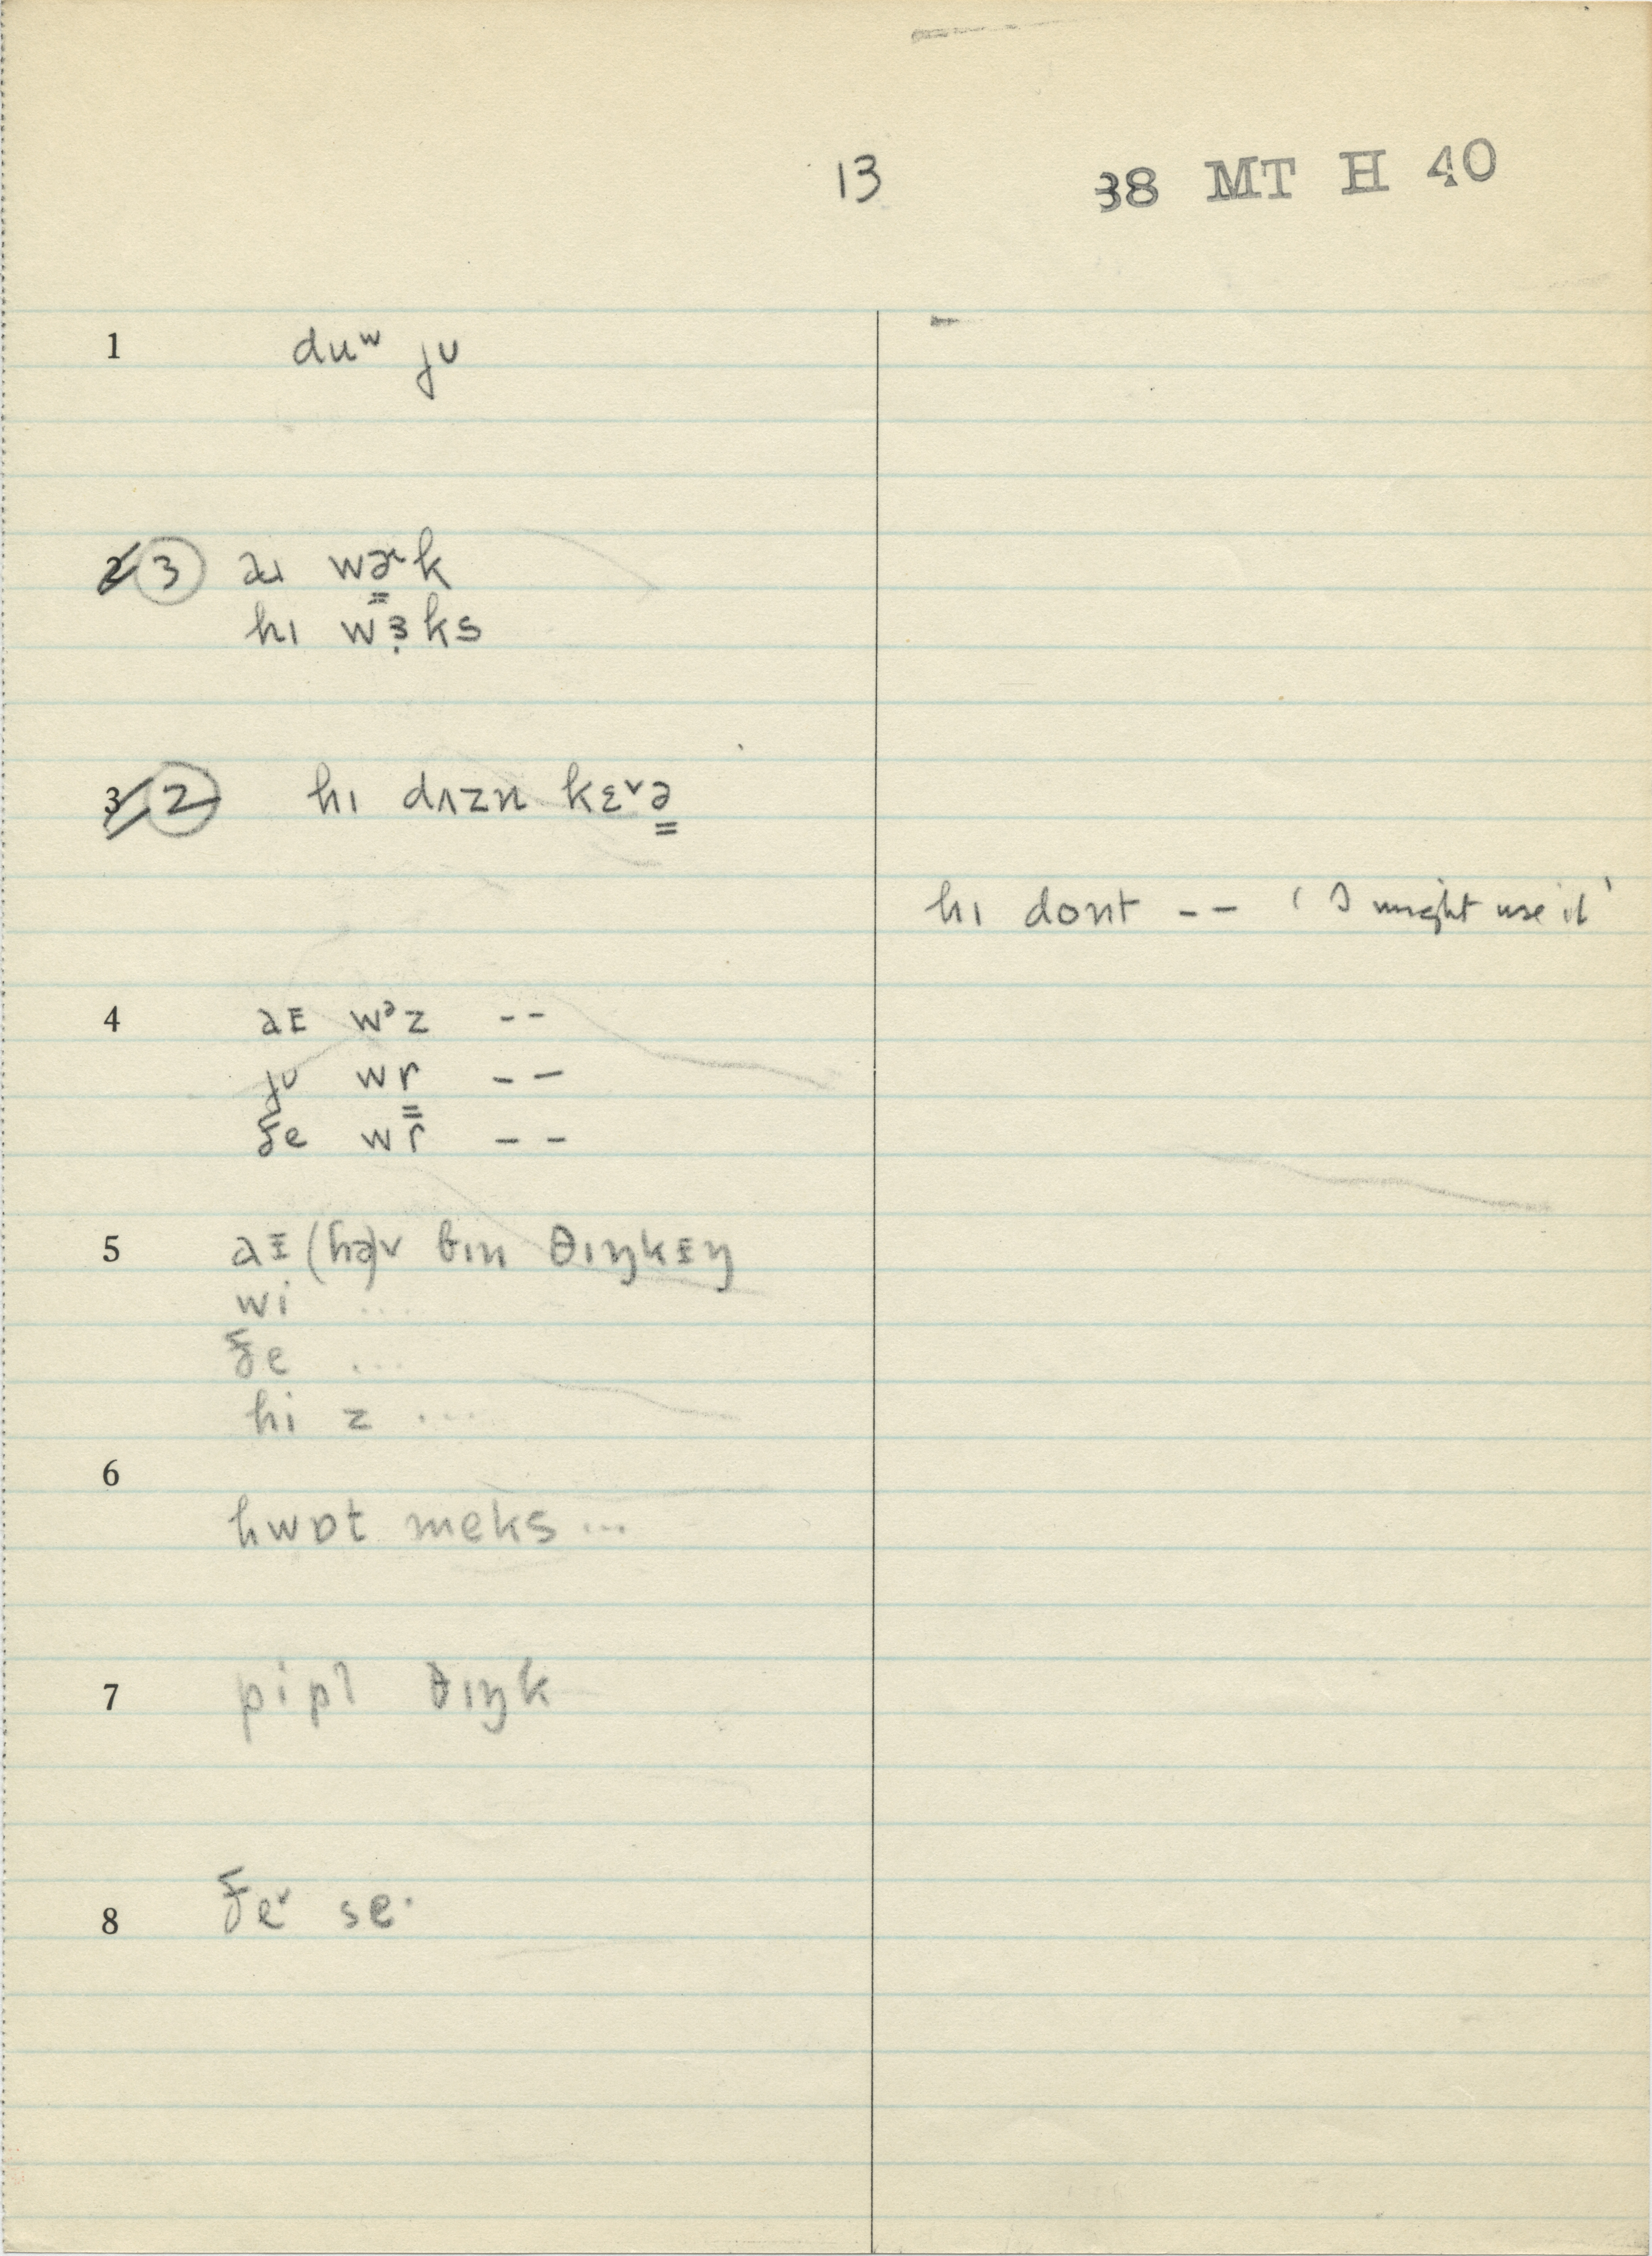 13 38 MT H 40
1 duʷ jʊ
2 3 aɪ wɚk
hɪ wɜks
3 2 hɪ dʌzn kɛ˅ə
hɪ dont -- ‘I might use it’
4 aᵻ wᵊz --
jʊ wr --
ðe wr --
5 aᵻ (hə)v bɪn θɪŋkᵻŋ
wi ...
ðe ...
hi z ...
6
hwɒt meks ...
7 pipl θɪŋk
8 ðe˅ se·